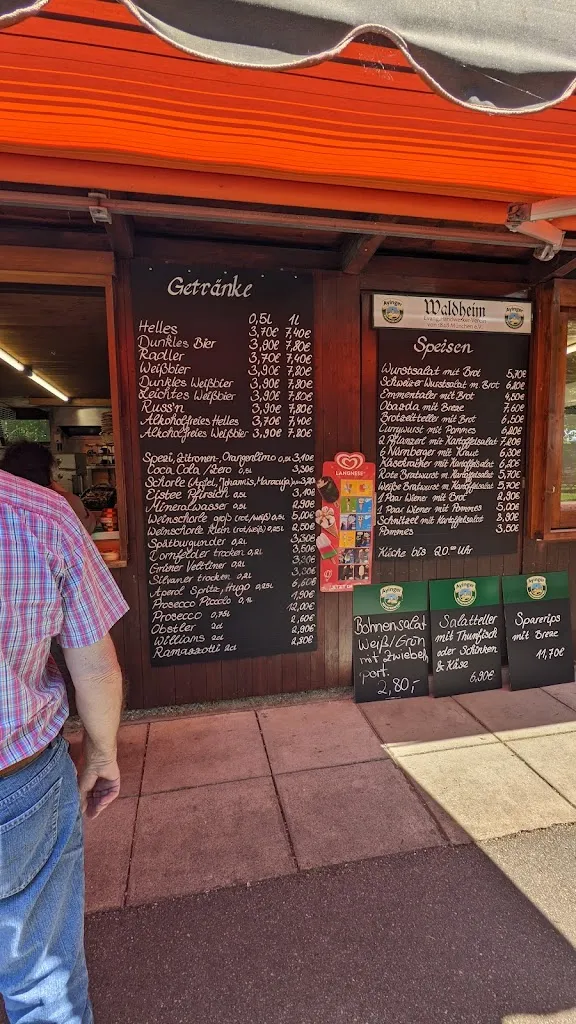 Getränke
0,5L 1L
Helles 3,70€ 7,40€
Dunkles Bier 3,90€ 7,80€
Radler 3,70€ 7,40€
Weißbier 3,90€ 7,80€
Dunkles Weißbier 3,90€ 7,80€
Leichtes Weißbier 3,90€ 7,80€
Russ'n 3,90€ 7,80€
Alkoholfreies Helles 3,70€ 7,40€
Alkoholfreies Weißbier 3,90€ 7,80€
Spezi, Zitronen, Orangenlimo 0,5L 3,10€
Coca Cola/Zero 0,5L 3,30€
Schorle (Apfel, Johannis, Maracuja)
Eistee Pfirsich 0,5L 3,10€
Mineralwasser 0,5L 2,90€
Weinschorle groß (rot/weiß) 0,5L 5,00€
Weinschorle klein (rot/weiß) 2,50€
Spätburgunder 0,2L 3,30€
Cornfelder trocken 0,2L 3,50€
Grüner Veltliner 0,2L
Silvaner trocken 0,2L
Aperol Spritz, Hugo 0,25L 6,60€
Prosecco Piccolo 0,1L 1,90€
Prosecco 0,75L 12,00€
Obstler 2cl 2,60€
Williams 2cl 2,90€
Ramazzotti 2cl 2,80€
LANGNESE
Ayinger
Waldheim
Ayinger
Speisen
Wurstsalat mit Brot 5,70€
Schweizer Wurstsalat m. Brot 6,80€
Emmentaler mit Brot
Obazda mit Breze 7,60€
Brotzeitteller mit Brot
Currywurst mit Pommes
2 Pflanzerl mit Kartoffelsalat 7,20€
6 Nürnberger mit Kraut 6,30€
Käsekrainer mit Kartoffelsalat 6,20€
Rote Bratwurst m. Kartoffelsalat 5,70€
Weiße Bratwurst m. Kartoffelsalat 5,70€
1 Paar Wiener mit Brot 2,90€
1 Paar Wiener mit Pommes 5,00€
Schnitzel mit Kartoffelsalat 8,90€
Pommes 3,50€
Küche bis 20.00 Uhr
Ayinger
Bohnensalat
Weiß/Grün
mit Zwiebeln
port.
2,80,-
Ayinger
Salatteller
mit Thunfisch
oder Schinken
& Käse
6,90€
Ayinger
Spareribs
mit Breze
11,70€